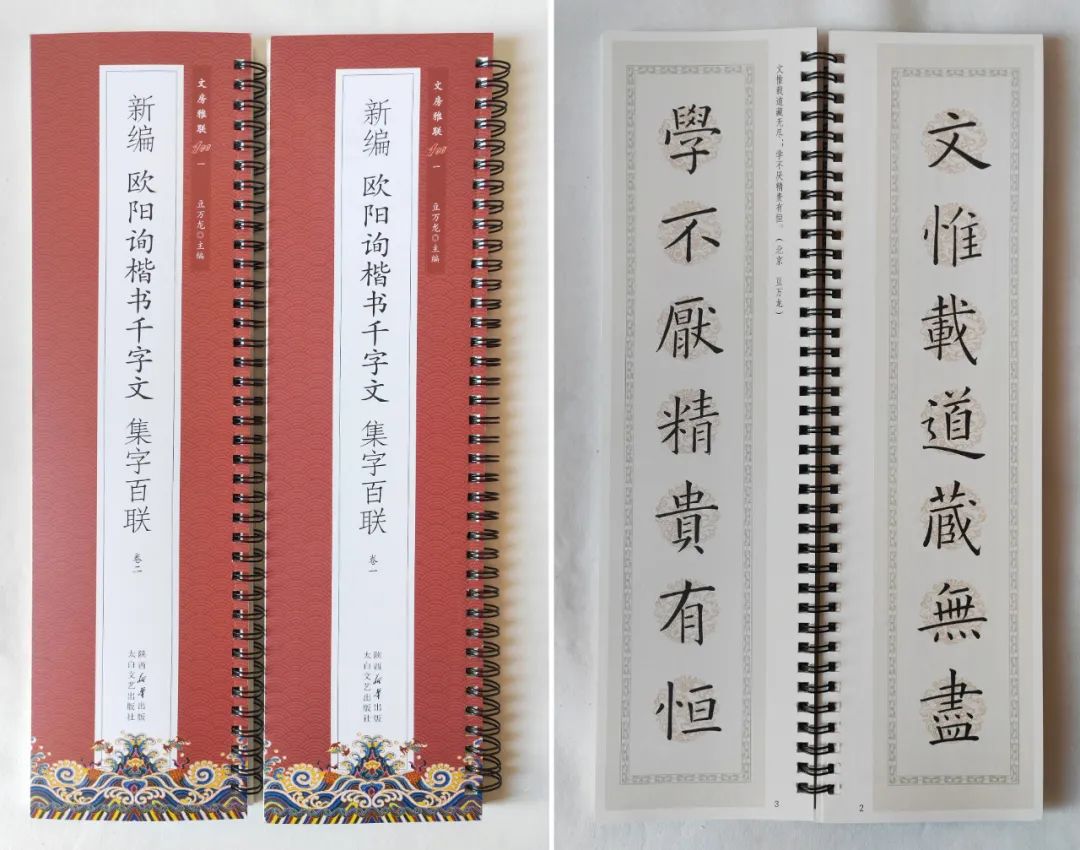 文房雅联 一 豆万龙◎主编
新编 欧阳询楷书千字文 集字百联 卷二
陕西新华出版
太白文艺出版社
文房雅联 一 豆万龙◎主编
新编 欧阳询楷书千字文 集字百联 卷一
陕西新华出版
太白文艺出版社
文惟載道蔵無盡
2
文惟载道藏无尽；学不厌精贵有恒。（北京 豆万龙）
學不厭精貴有恒
3